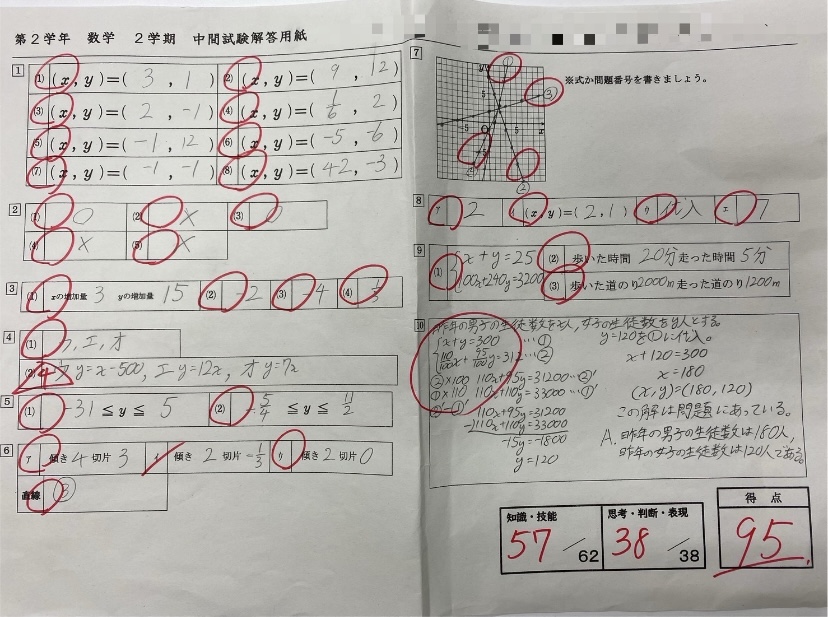 第2学年 数学 2学期 中間試験解答用紙
1
(1) (x, y)=( 3 , 1 ) (2) (x, y)=( 9 , 12 )
(3) (x, y)=( 2 , -1 ) (4) (x, y)=( 1/6 , 2 )
(5) (x, y)=( -1 , 12 ) (6) (x, y)=( -5 , -6 )
(7) (x, y)=( -1 , -1 ) (8) (x, y)=( 42 , -3 )
2
(1) ○ (2) × (3) ○
(4) × (5) ×
3
(1) xの増加量 3 yの増加量 15 (2) -2 (3) -4 (4)
4
(1) ウ, エ, オ
y=x-500, エ y=12x, オ y=7x
5
(1) -31 ≦ y ≦ 5 (2) -5/4 ≦ y ≦ 11/2
6
ア 傾き 4 切片 3 傾き 2 切片 -1/3 ウ 傾き 2 切片 0
直線 ③
7
※式か問題番号を書きましょう。
y
①
③
5
-5 O 5 x
-5
②
8
ア 2 イ (x, y)=( 2, 1 ) ウ 代入 エ 7
9
(1) x+y=25 (2) 歩いた時間 20分 走った時間 5分
100x+240y=3200 (3) 歩いた道のり 2000m 走った道のり 1200m
10
昨年の男子の生徒数をx人, 女子の生徒数をy人とする。
x+y=300 …①
110/100x+95/100y=312…②
②×100 110x+95y=31200…②'
①×110 110x+110y=33000…①'
②'-①' 110x+95y=31200
-)110x+110y=33000
-15y=-1800
y=120
y=120を①に代入。
x+120=300
x=180
(x,y)=(180,120)
この解は問題にあっている。
A. 昨年の男子の生徒数は180人,
昨年の女子の生徒数は120人である。
知識・技能 思考・判断・表現 得点
57/62 38/38 95